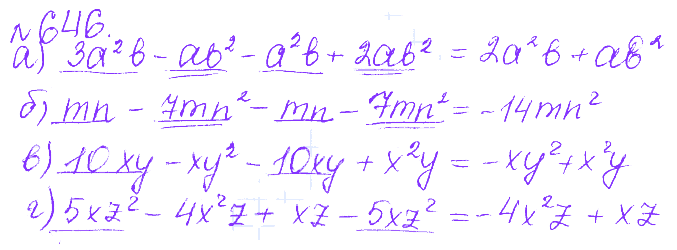 №646.
а) 3a²b - ab² - a²b + 2ab² = 2a²b + ab²
б) mn - 7mn² - mn - 7mn² = -14mn²
в) 10xy - xy² - 10xy + x²y = -xy² + x²y
г) 5xz² - 4x²z + xz - 5xz² = -4x²z + xz